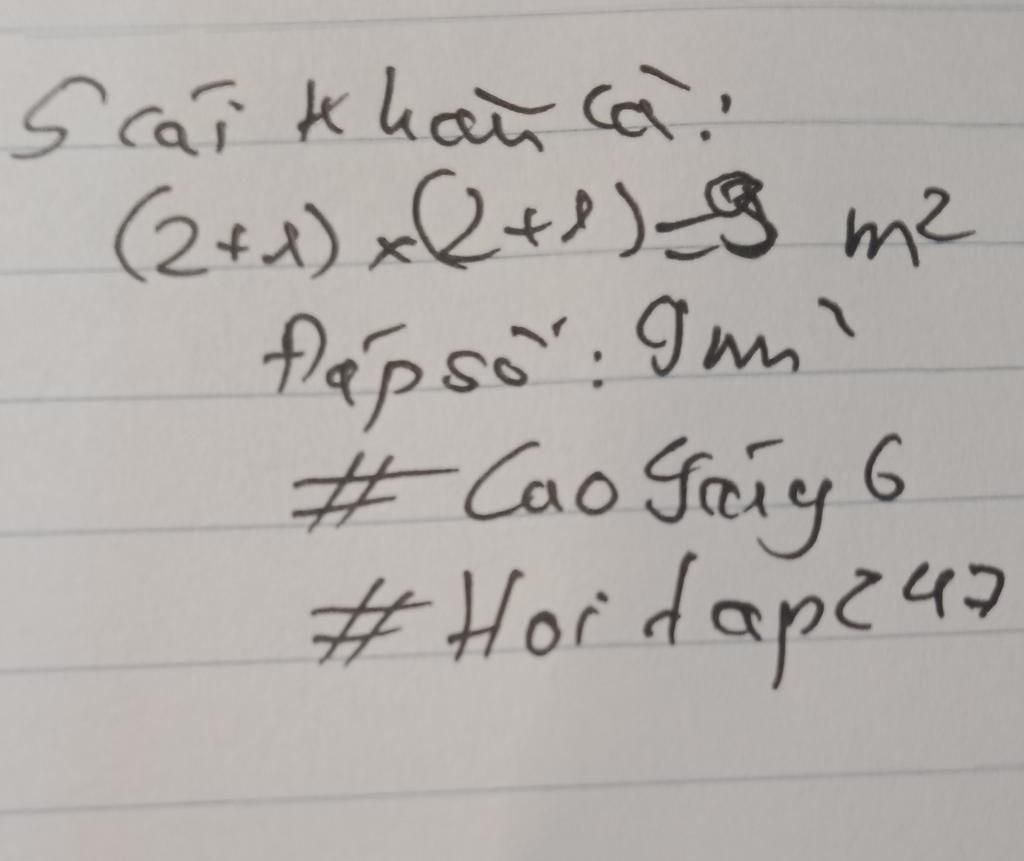 S cái khăn cả:
(2+1)×(2+1)=9 m²
Đáp số: 9m
# Cao 6
# Hoi dap247